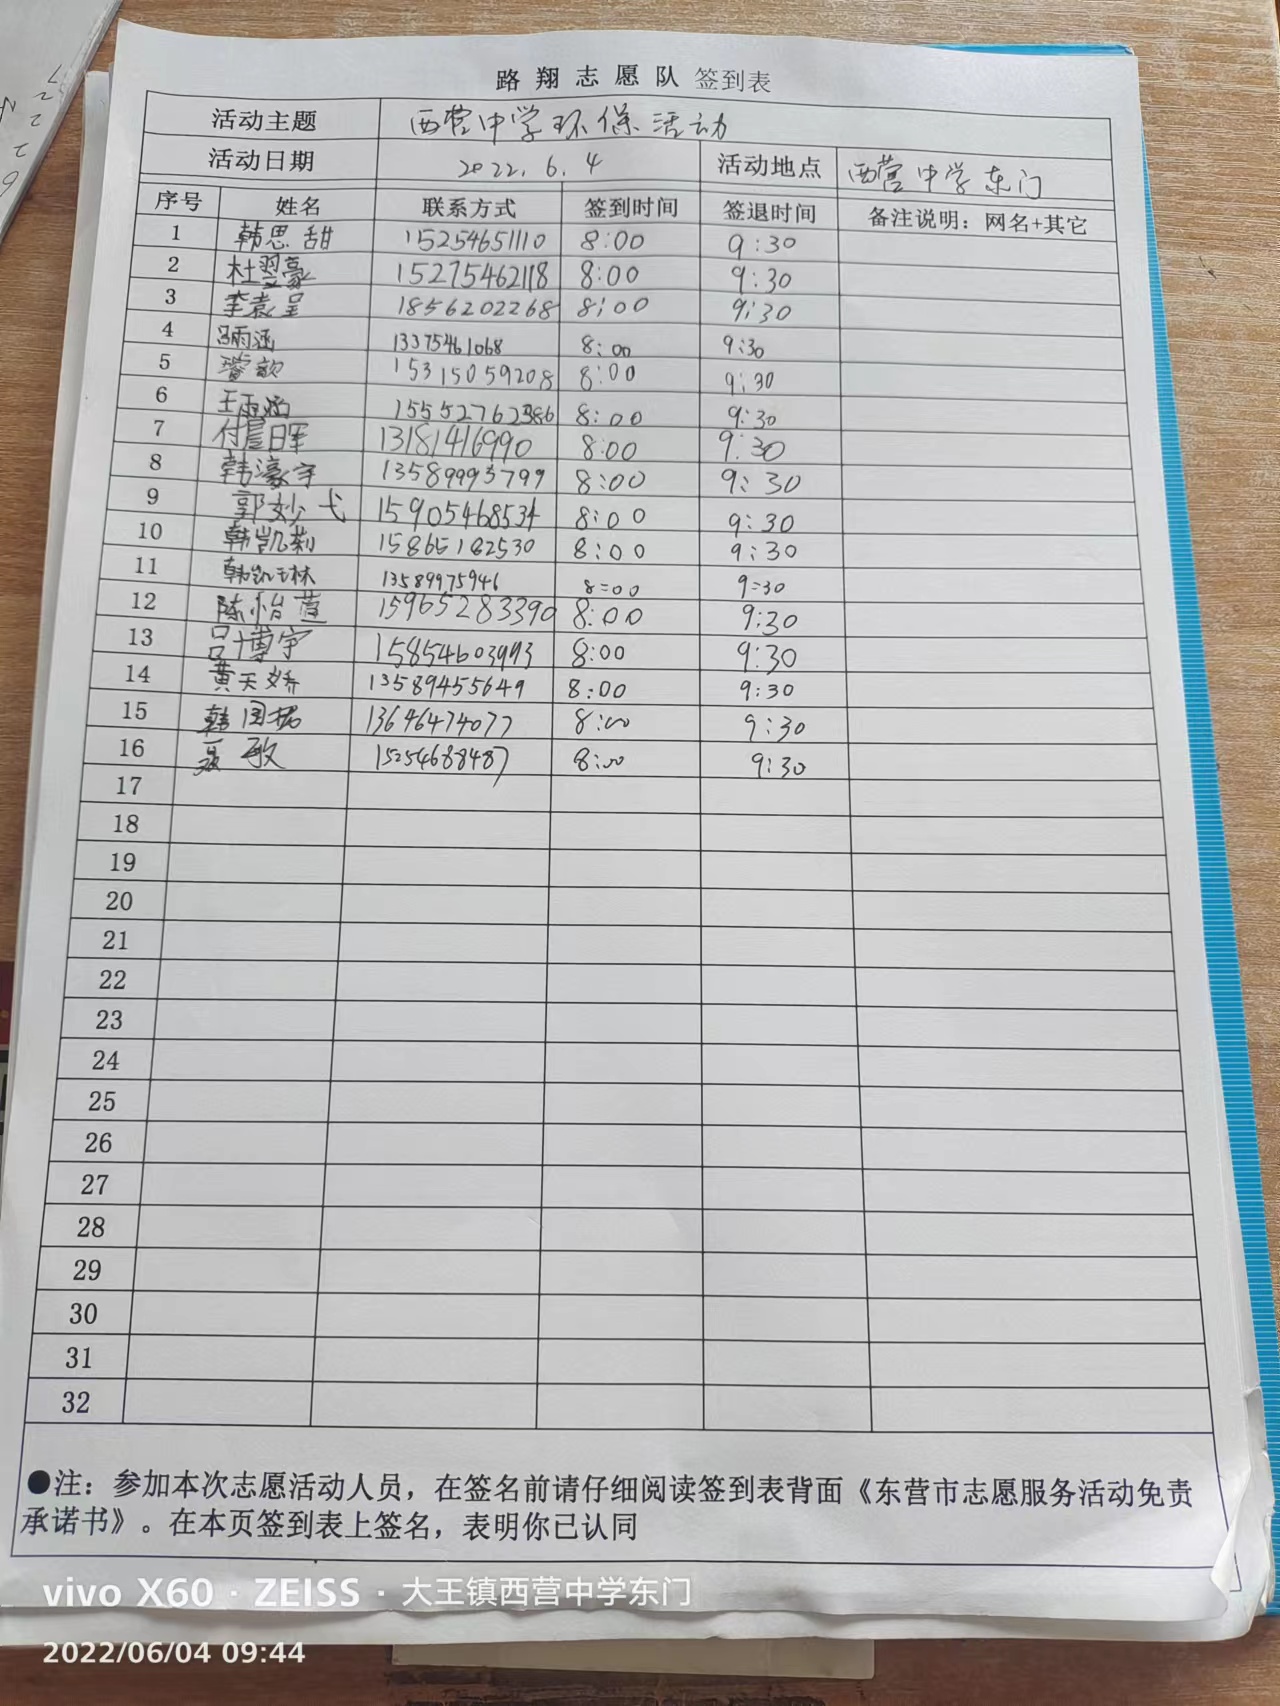 路翔志愿队 签到表
活动主题 西营中学环保活动
活动日期 2022.6.4 活动地点 西营中学东门
序号 姓名 联系方式 签到时间 签退时间 备注说明：网名+其它
1 韩思甜 15254651110 8:00 9:30
2 杜翌豪 15275462118 8:00 9:30
3 李袁呈 18562022268 8:00 9:30
4 冯雨涵 13375461068 8:00 9:30
5 15315059208 8:00 9:30
6 王雨涵 15552762386 8:00 9:30
7 付晨晖 13181416990 8:00 9:30
8 韩濠宇 13589993799 8:00 9:30
9 郭妙弋 15905468534 8:00 9:30
10 韩凯莉 15865182530 8:00 9:30
11 韩凯琳 13589975946 8:00 9:30
12 陈怡萱 15965283390 8:00 9:30
13 吕博宇 15854603993 8:00 9:30
14 黄天娇 13589455649 8:00 9:30
15 韩国 13646474077 8:00 9:30
16 聂敏 15254688487 8:00 9:30
17
18
19
20
21
22
23
24
25
26
27
28
29
30
31
32
●注：参加本次志愿活动人员，在签名前请仔细阅读签到表背面《东营市志愿服务活动免责
承诺书》。在本页签到表上签名，表明你已认同
vivo X60 · ZEISS · 大王镇西营中学东门
2022/06/04 09:44